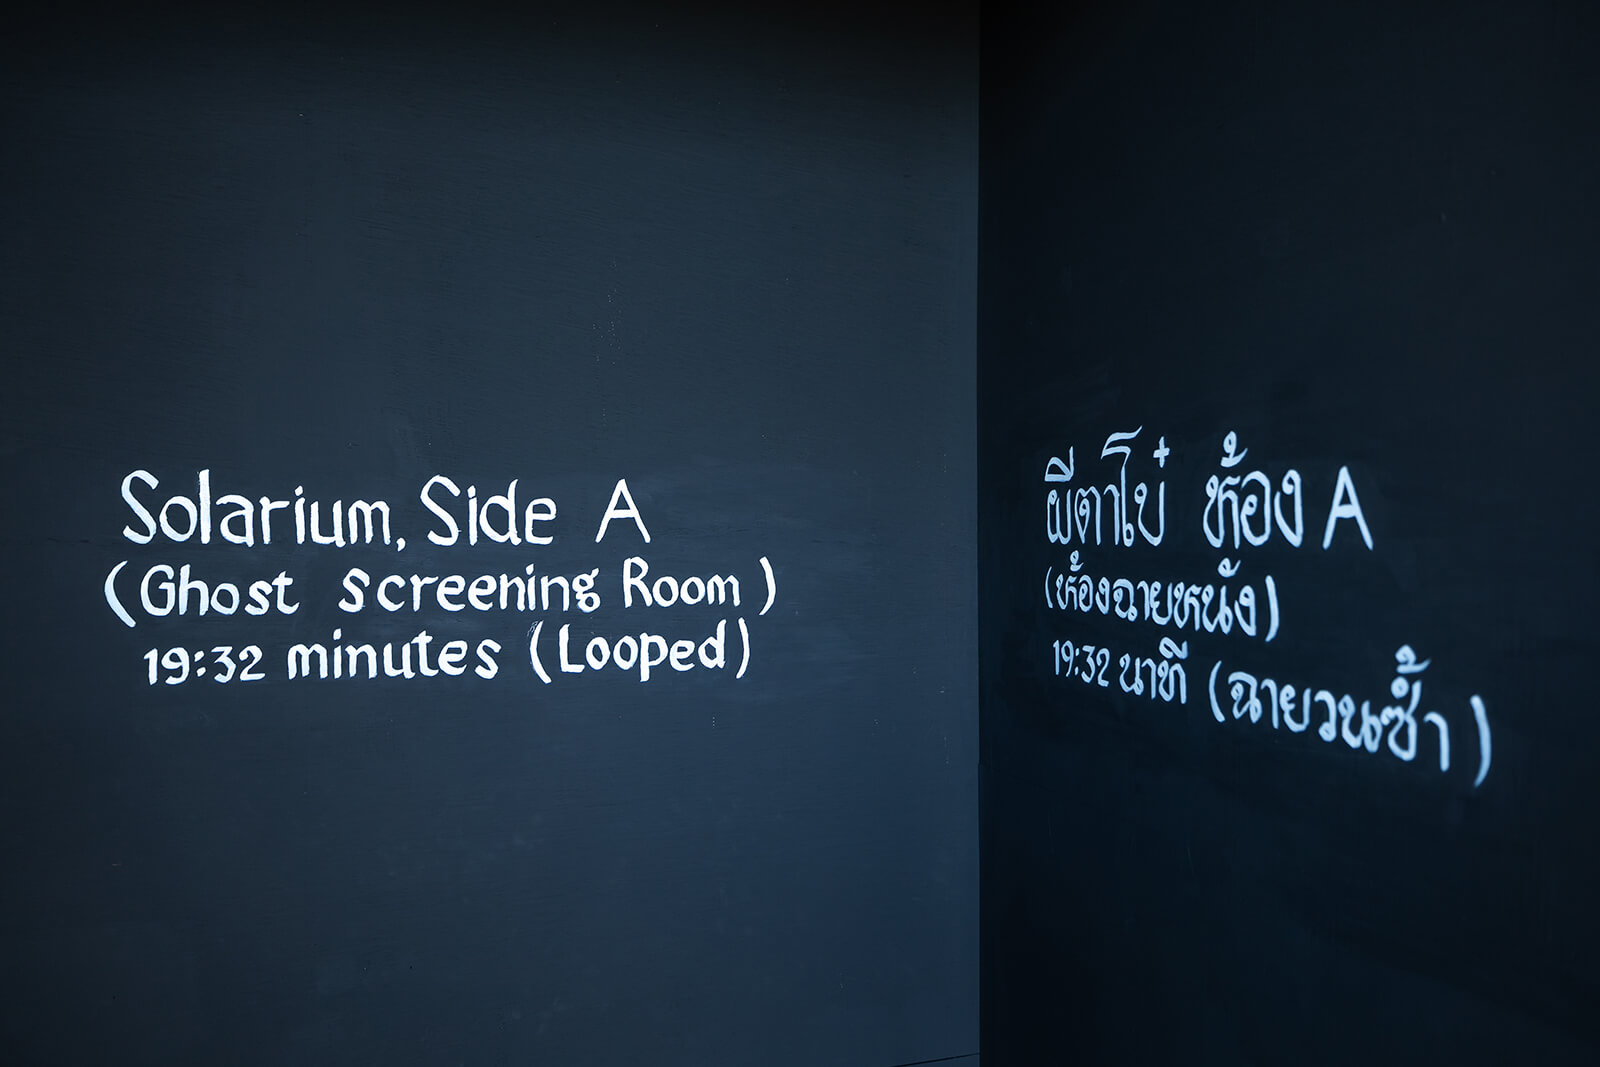 Solarium, Side A
(Ghost screening Room)
19:32 minutes (Looped)
ผีตาโบ๋ ห้อง A
(ห้องฉายหนัง)
19:32 นาที (ฉายวนซ้ำ)